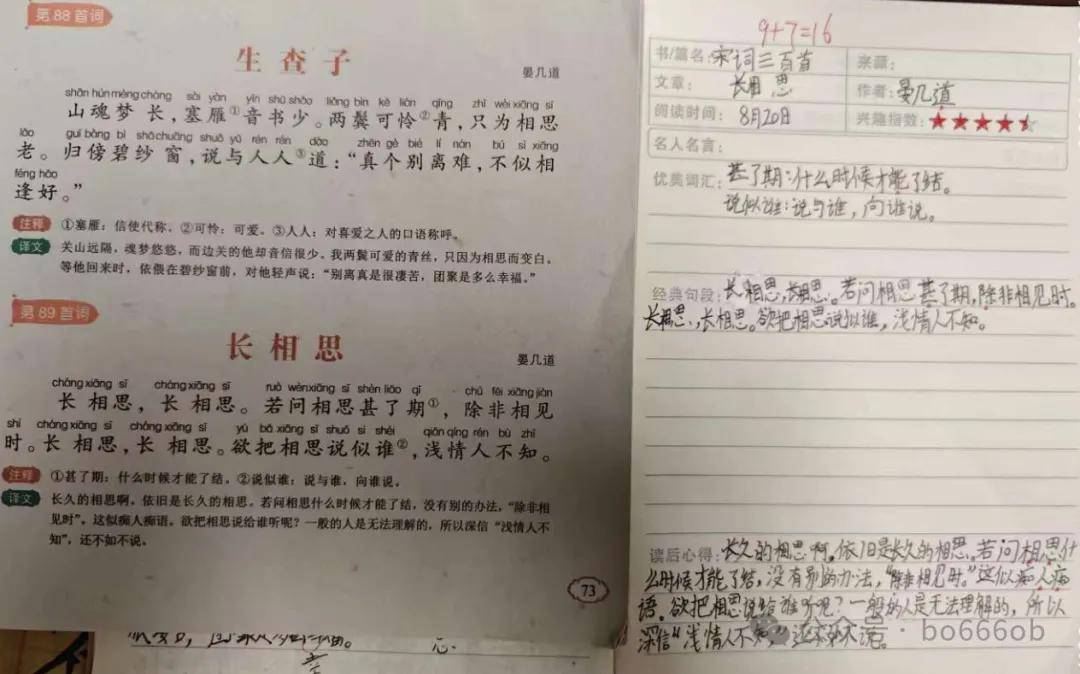 第88首词
生查子
晏几道
shān hún mèng cháng sài yàn yīn shū shǎo liǎng bìn kě lián qīng zhǐ wèi xiāng sī
山魂梦长，塞雁①音书少。两鬓可怜②青，只为相思
lǎo guī bàng bì shā chuāng shuō yǔ rén rén dào zhēn gè bié lí nán bú sì xiāng
老。归傍碧纱窗，说与人人③道：“真个别离难，不似相
féng hǎo
逢好。”
注释 ①塞雁：信使代称。②可怜：可爱。③人人：对喜爱之人的口语称呼。
译文 关山远隔，魂梦悠悠，而边关的他却音信很少。我两鬓可爱的青丝，只因为相思而变白。
等他回来时，依偎在碧纱窗前，对他轻声说：“别离真是很凄苦，团聚是多么幸福。”
第89首词
长相思
晏几道
cháng xiāng sī cháng xiāng sī ruò wèn xiāng sī shèn liǎo qī chú fēi xiāng jiàn
长相思，长相思。若问相思甚了期①，除非相见
shí cháng xiāng sī cháng xiāng sī yù bǎ xiāng sī shuō sì shéi qiǎn qíng rén bù zhī
时。长相思，长相思。欲把相思说似谁②，浅情人不知。
注释 ①甚了期：什么时候才能了结。②说似谁：说与谁，向谁说。
译文 长久的相思啊，依旧是长久的相思。若问相思什么时候才能了结，没有别的办法，“除非相
见时”。这似痴人痴语。欲把相思说给谁听呢？一般的人是无法理解的，所以深信“浅情人不
知”，还不如不说。
73
9+7=16
书/篇名：宋词三百首 来源：
文章：长相思 作者：晏几道
阅读时间：8月20日 兴趣指数：★★★★
名人名言：
优美词汇：甚了期：什么时候才能了结。
说似谁：说与谁，向谁说。
经典句段：长相思，长相思。若问相思甚了期，除非相见时。
长相思，长相思。欲把相思说似谁，浅情人不知。
读后心得：长久的相思啊。依旧是长久的相思。若问相思什
么时候才能了结，没有别的办法，“除非相见时。”这似痴人痴
语。欲把相思说给谁听呢？一般的人是无法理解的，所以
深信“浅情人不知，”还不如不说。
bo666ob